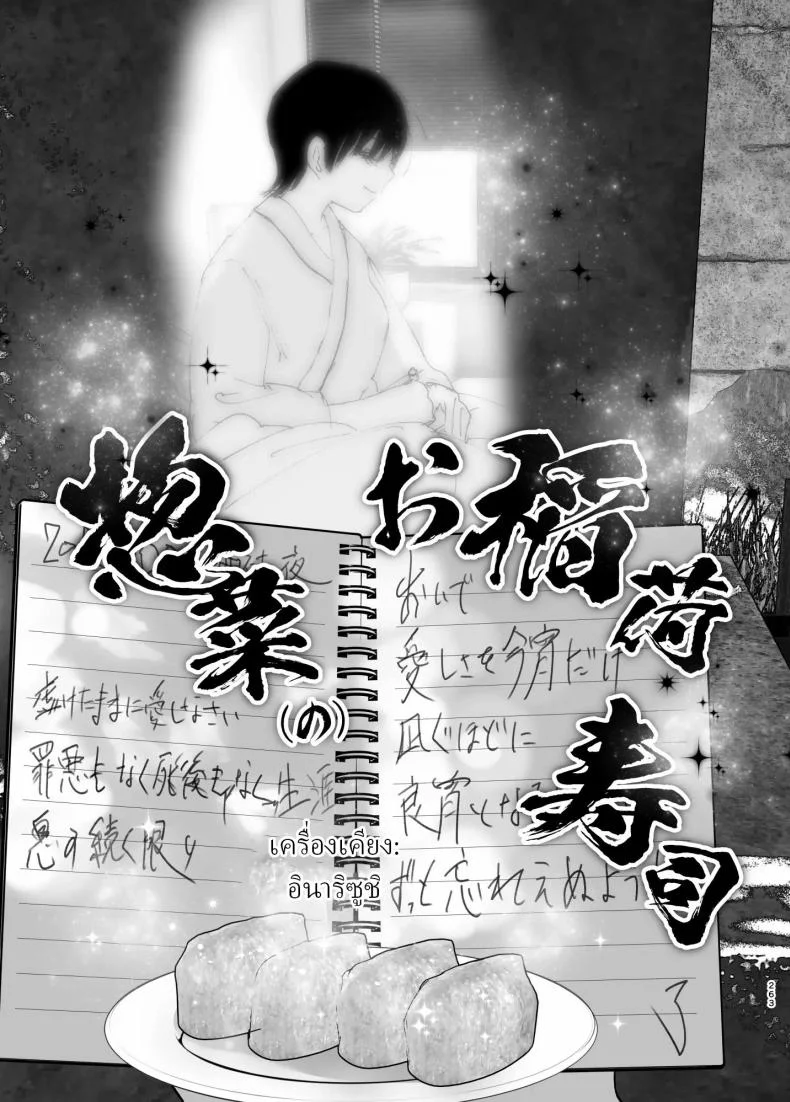 お稲荷寿司
惣菜
(の)
おいで
愛しさを今宵だけ
凪ぐほどに
良宵となる
ずっと忘れえぬよう
了
夜
虚けたままに愛しなさい
罪悪もなく死後もなく生涯
息の続く限り
เครื่องเคียง:
อินาริซูชิ
263